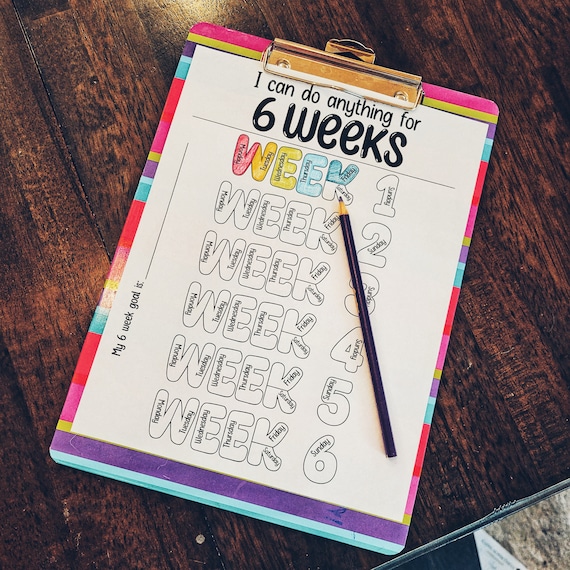 I can do anything for
6 WEEKS
WEEK 1
Monday Tuesday Wednesday Thursday Friday Saturday Sunday
WEEK 2
Monday Tuesday Wednesday Thursday Friday Saturday Sunday
WEEK 3
Monday Tuesday Wednesday Thursday Friday Saturday Sunday
WEEK 4
Monday Tuesday Wednesday Thursday Friday Saturday Sunday
WEEK 5
Monday Tuesday Wednesday Thursday Friday Saturday Sunday
WEEK 6
Monday Tuesday Wednesday Thursday Friday Saturday Sunday
My 6 week goal is: